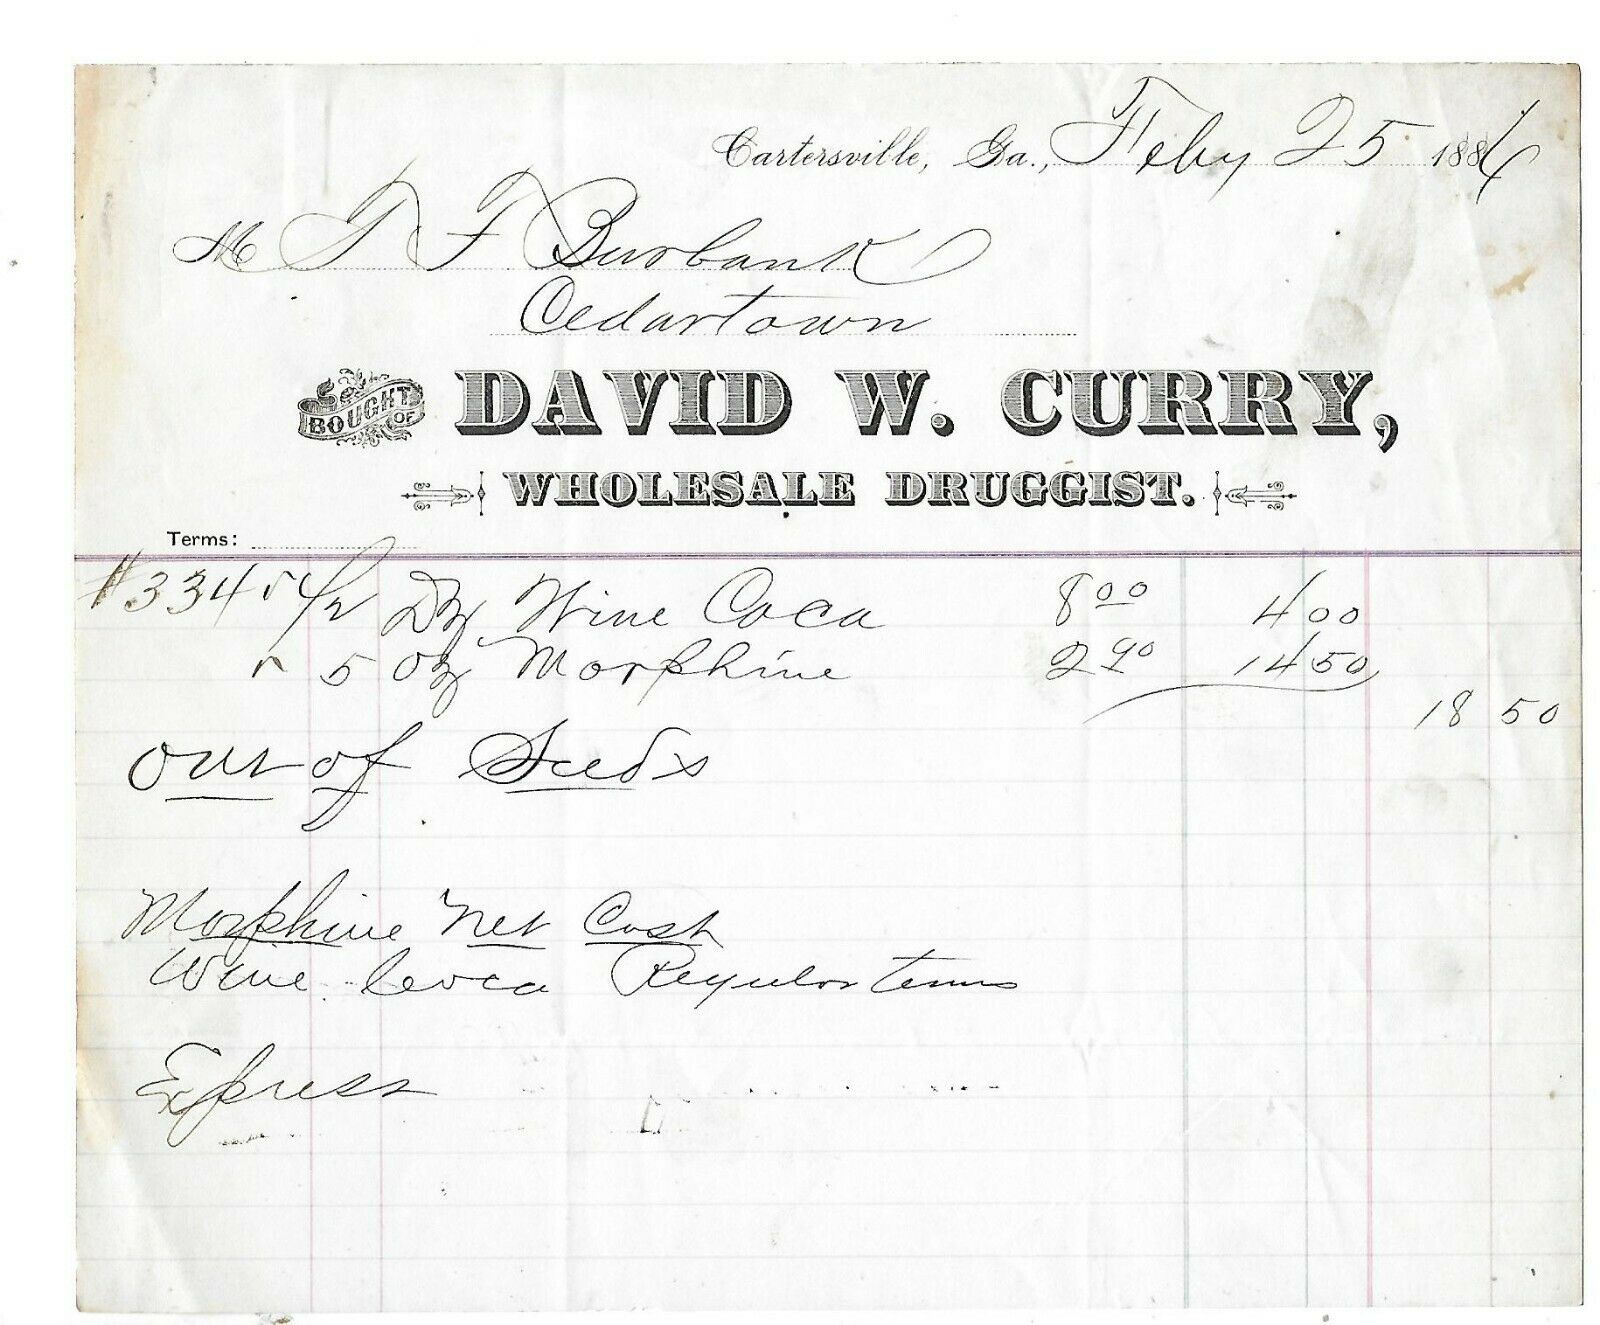 Cartersville, Ga., Feby 25 1886
M T F Burbank
Cedartown
BOUGHT OF
DAVID W. CURRY,
WHOLESALE DRUGGIST.
Terms:
#334 1/2 Dz Wine Coca 8 00 4 00
5 Oz Morphine 2 90 14 50
18 50
Out of Seeds
Morphine Net Cash
Wine Coca Regular terms
Express